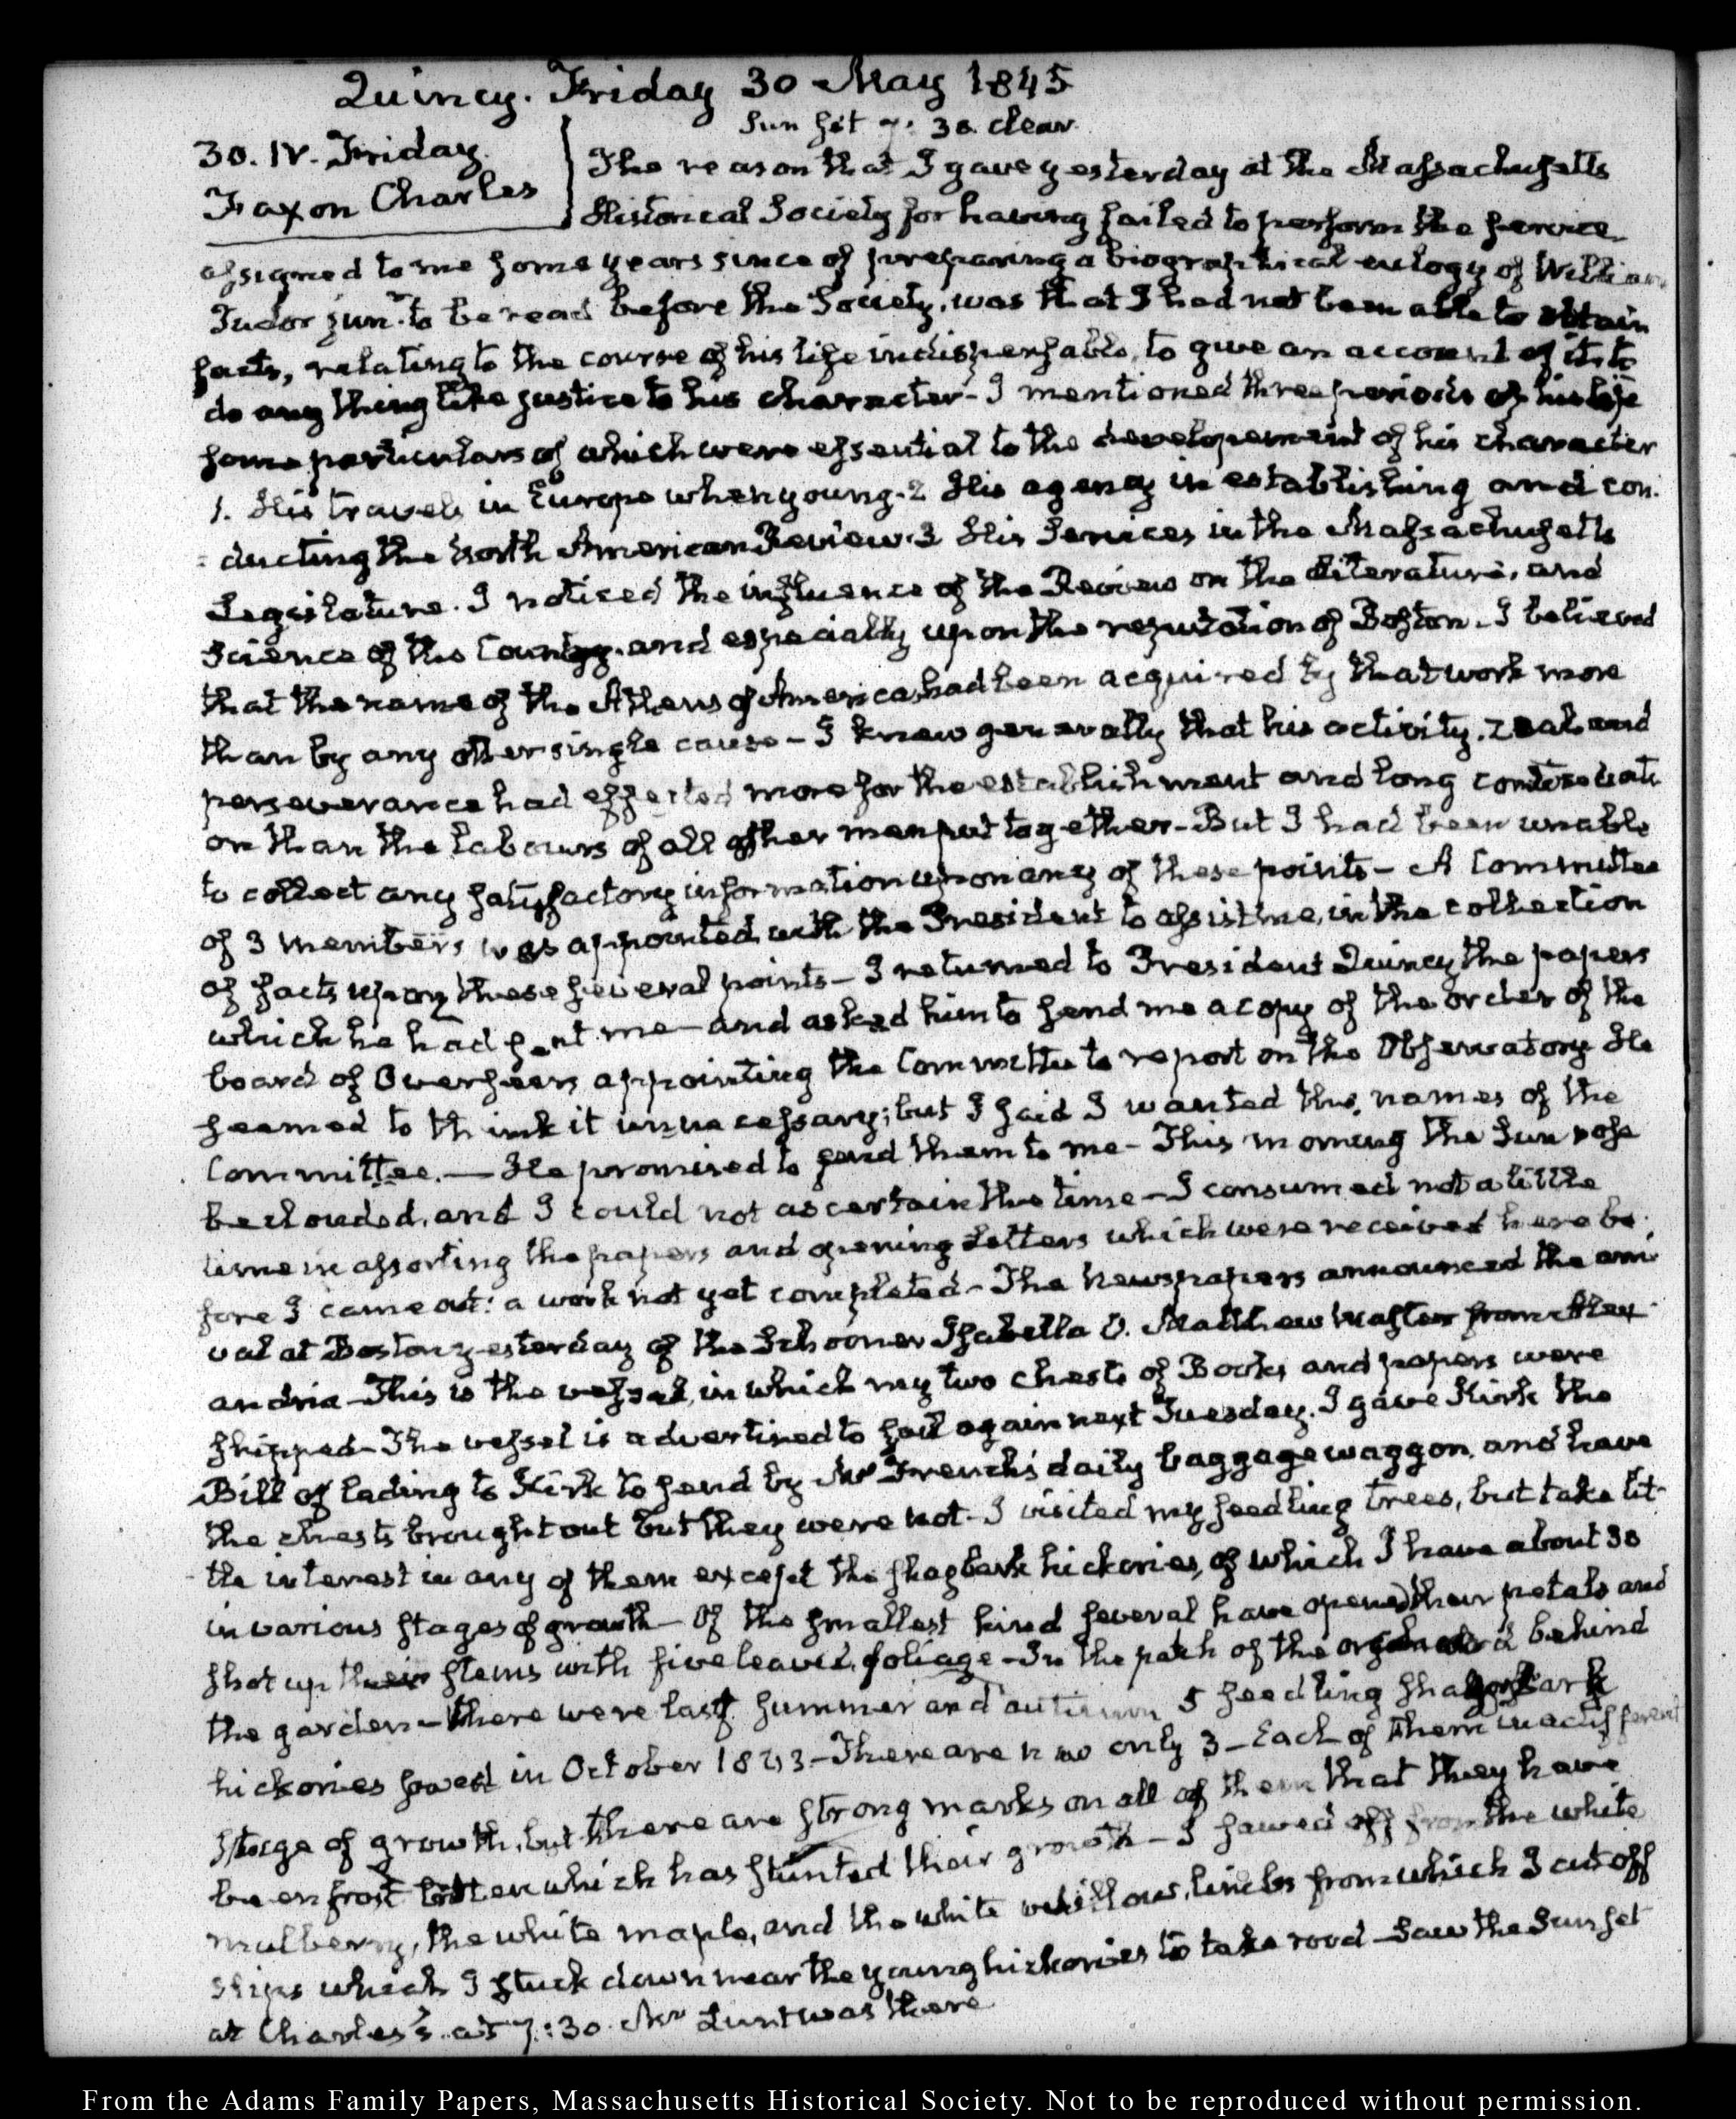 Quincy. Friday 30 May 1845
Sun set 7:30. clear.
30. IV. Friday.
Faxon Charles
The reason that I gave yesterday at the Massachusetts
Historical Society for having failed to perform the service
assigned to me some years since of preparing a biographical eulogy of William
Tudor junr. to be read before the Society, was that I had not been able to obtain
facts, relating to the course of his life indispensable, to give an account of it to
do any thing like justice to his character - I mentioned three periods of his life
some particulars of which were essential to the developement of his character
1. His travels in Europe when young. 2 His agency in establishing and con-
ducting the North American Review. 3 His Services in the Massachusetts
Legislature. I noticed the influence of the Review on the literature, and
Science of the Country, and especially upon the reputation of Boston. I believed
that the name of the Athens of America had been acquired by that work more
than by any other single cause - I knew generally that his activity, zeal and
perseverance had effected more for the establishment and long
on than the labours of all other men put together - But I had been unable
to collect any satisfactory information upon any of these points - A Committee
of 3 members was appointed with the President to assist me, in the collection
of facts upon these several points - I returned to President Quincy the papers
which he had sent me - and asked him to send me a copy of the order of the
board of Overseers appointing the Committee to report on the Observatory He
seemed to think it unnecessary; but I said I wanted the names of the
Committee. — He promised to send them to me - This morning the Sun rose
beclouded, and I could not ascertain the time - I consumed not a little
time in assorting the papers and opening Letters which were received here be-
fore I came out: a work not yet completed - The Newspapers announced the arri-
val at Boston yesterday of the Schooner Isabella O. Matthew Master from Alex-
andria - This is the vessel, in which my two chests of Books and papers were
shipped - The vessel is advertised to sail again next Tuesday. I gave Kirk the
Bill of lading to Kirk to send by Mr French's daily baggage waggon, and have
the chests brought out but they were not - I visited my seedling trees, but take lit-
tle interest in any of them except the shagbark hickories, of which I have about 30
in various stages of growth - Of the smallest kind several have opened their petals and
shot up their stems with five leaved foliage - In the path of the orchard behind
the garden - there were last summer and autumn 5 seedling shagbark
hickories sowed in October 1843 - There are now only 3 - Each of them in a different
stage of growth, but there are strong marks on all of them that they have
been frost bitten which has stunted their growth - I sawed off from the white
mulberry, the white maple, and the white willow, limbs from which I cut off
slips which I stuck down near the young hickories to take rood - Saw the Sun set
at Charles's at 7:30. Mr Lunt was there
From the Adams Family Papers, Massachusetts Historical Society. Not to be reproduced without permission.